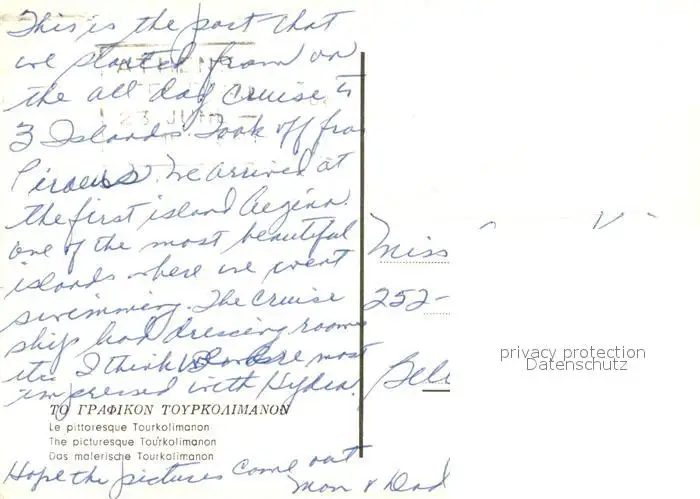 This is the port that
we started from on
the all day cruise to
3 Islands. Took off from
Piraeus. We arrived at
the first island Aegina.
one of the most beautiful
islands where we went
swimming. The cruise
ship had dressing rooms
etc. I think we were most
impressed with Hydra.
ΤΟ ΓΡΑΦΙΚΟΝ ΤΟΥΡΚΟΛΙΜΑΝΟΝ
Le pittoresque Tourkolimanon
The picturesque Tourkolimanon
Das malerische Tourkolimanon
Hope the pictures come out
Mom & Dad
23 JUN
Miss
252-
Bell
privacy protection
Datenschutz